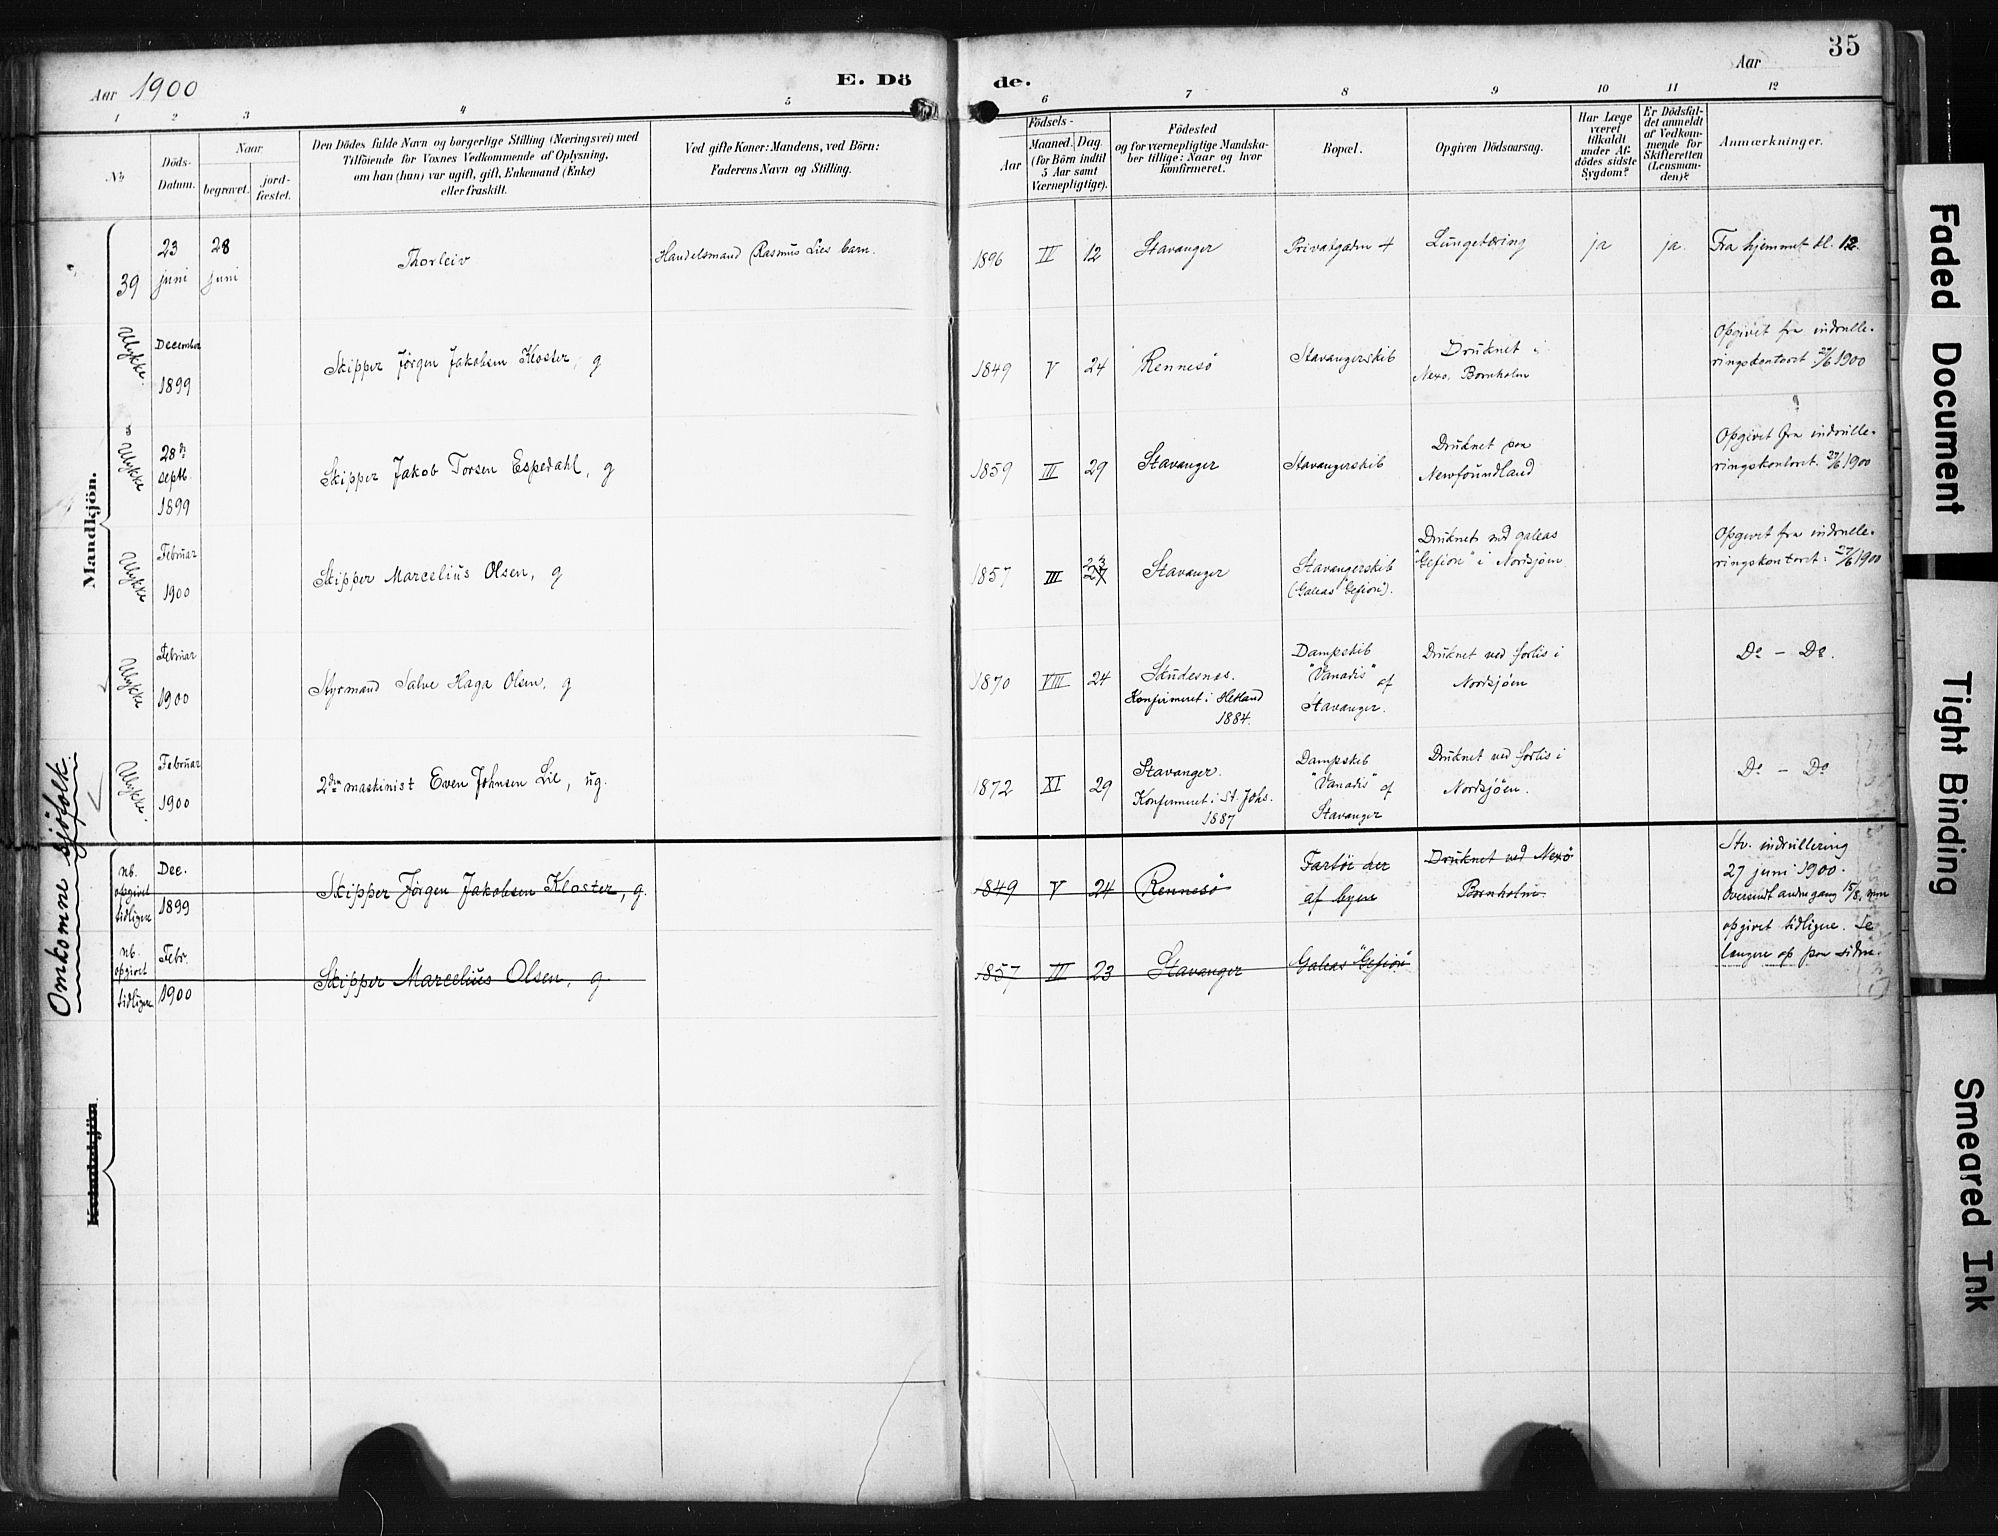 35
Aar 1900
E. Dö de.
Aar
1 2 3 4 5 6 7 8 9 10 11 12
No
Döds-
Datum.
Naar
begravet.
jord-
fæstet.
Den Dödes fulde Navn og borgerlige Stilling (Næringsvei) med
Tilföiende for Voxnes Vedkommende af Oplysning,
om han (hun) var ugift, gift, Enkemand (Enke)
eller fraskilt.
Ved gifte Koner: Mandens, ved Börn:
Faderens Navn og Stilling.
Födsels-
Aar
Maaned. Dag.
(for Börn indtil
5 Aar samt
Værnepligtige).
Födested
og for værnepligtige Mandska-
ber tillige: Naar og hvor
konfirmeret.
Bopæl.
Opgiven Dödsaarsag.
Har Læge
været
tilkaldt
under Af-
dödes sidste
Sygdom?
Er Dödsfal-
det anmeldt
af Vedkom-
mende for
Skifteretten
(Lensman-
den)?
Anmærkninger.
Mandkjön.
39
23
juni
28
juni
Thorleiv
Handelsmand Rasmus Lies barn.
1896 II 12
Stavanger
Privatgaden 4
Lungetæring
ja
ja.
Fra hjemmet kl. 12.
Ulykke.
December
1899
Skipper Jörgen Jakobsen Kloster, g
1849 V 24
Rennesö
Stavangerskib
Druknet i
Nexo, Bornholm
Opgivet fra indrulle-
ringskontoret 27/6 1900
Ulykke
28de
septb.
1899
Skipper Jakob Torsen Espedahl, g
1859 III 29
Stavanger
Stavangerskib
Druknet paa
Newfoundland
Opgivet fra indrulle-
ringskontoret. 27/6 1900
Ulykke
Februar
1900
Skipper Marcelius Olsen, g
1857 III 23
27
Stavanger
Stavangerskib
(Galeas "Gefion").
Druknet med galeas
"Gefion" i Nordsjøen
Opgivet fra indrulle-
ringskontoret: 27/6 1900
Ulykke
Februar
1900
Styrmand Salve Haga Olsen, g
1870 VIII 24
Skudesnæs.
Konfirmeret i Hetland
1884.
Dampskib
"Vanadis" af
Stavanger.
Druknet ved forlis i
Nordsjøen
Do - Do.
Ulykke.
Februar
1900
2den maskinist Even Johnsen Lie, ug.
1872 XI 29
Stavanger.
Konfirmeret i St. Johs.
1887
Dampskib
"Vanadis" af
Stavanger
Druknet ved forlis i
Nordsjøen.
Do - Do
Omkomne sjøfolk.
nb.
opgivet
tidligere
Dec.
1899
Skipper Jörgen Jakobsen Kloster, g.
1849 V 24
Rennesö
Fartöi her
af byen
Druknet ved Nexö
Bornholm.
Stv. indrullering
27 juni 1900.
Oversendt anden gang 15/8, men
opgivet tidligere. Se
længere op paa siden.
nb.
opgivet
tidligere
Febr.
1900
Skipper Marcelius Olsen, g
1857 III 23
Stavanger
Galeas "Gefion"
Kvindekjön
Faded Document
Tight Binding
Smeared Ink